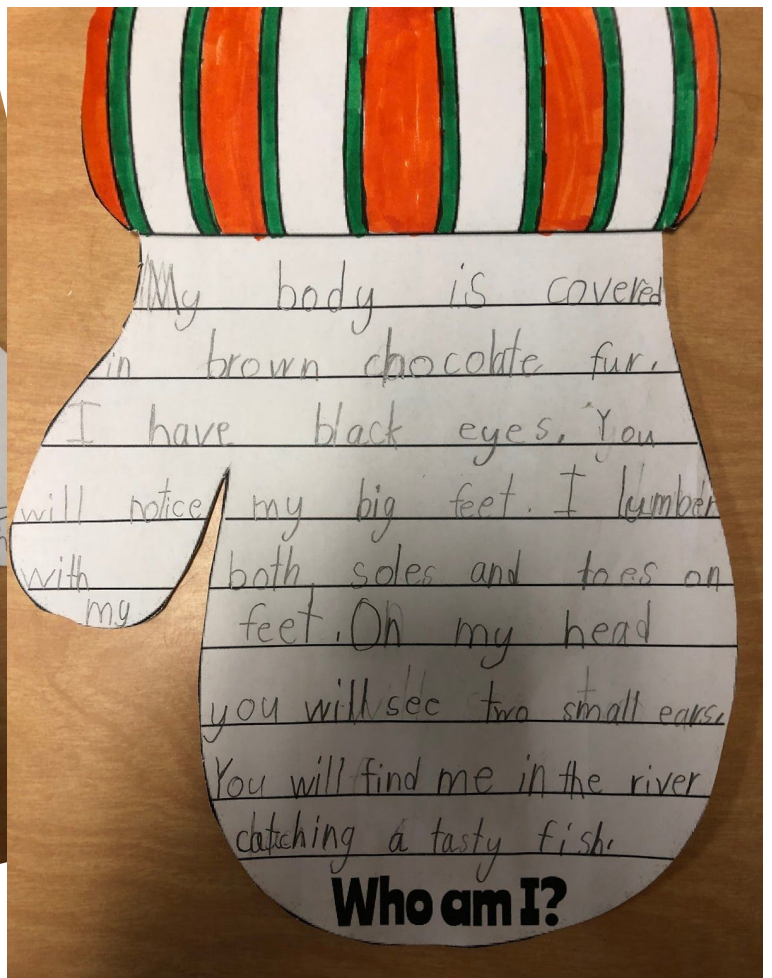 My body is covered
in brown chocolate fur.
I have black eyes. You
will notice my big feet. I lumber
with both soles and toes on
my feet. On my head
you will see two small ears.
You will find me in the river
catching a tasty fish.
Who am I?